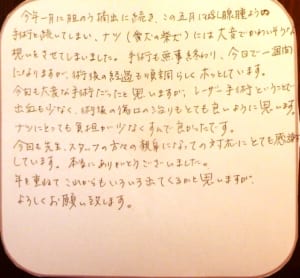 今年一月に胆のう摘出に続き、この五月に肛門腺腫ようの
手術と続いてしまい、ナツ(愛犬の柴犬)には大変でかわいそうな
想いをさせてしまいました。手術も無事終わり、今日で一週間
になりますが、術後の経過も順調らしくホッとしています。
今回も大変な手術だったと思いますが、レーザー手術ということで
出血も少なく、術後の傷口の治りもとても良いように思います。
ナツにとっても負担が少なくすんで良かったです。
今回も先生、スタッフの方々の親身になっての対応にとても感謝
しています。本当にありがとうございました。
年を重ねてこれからもいろいろ出てくるかと思いますが、
よろしくお願い致します。